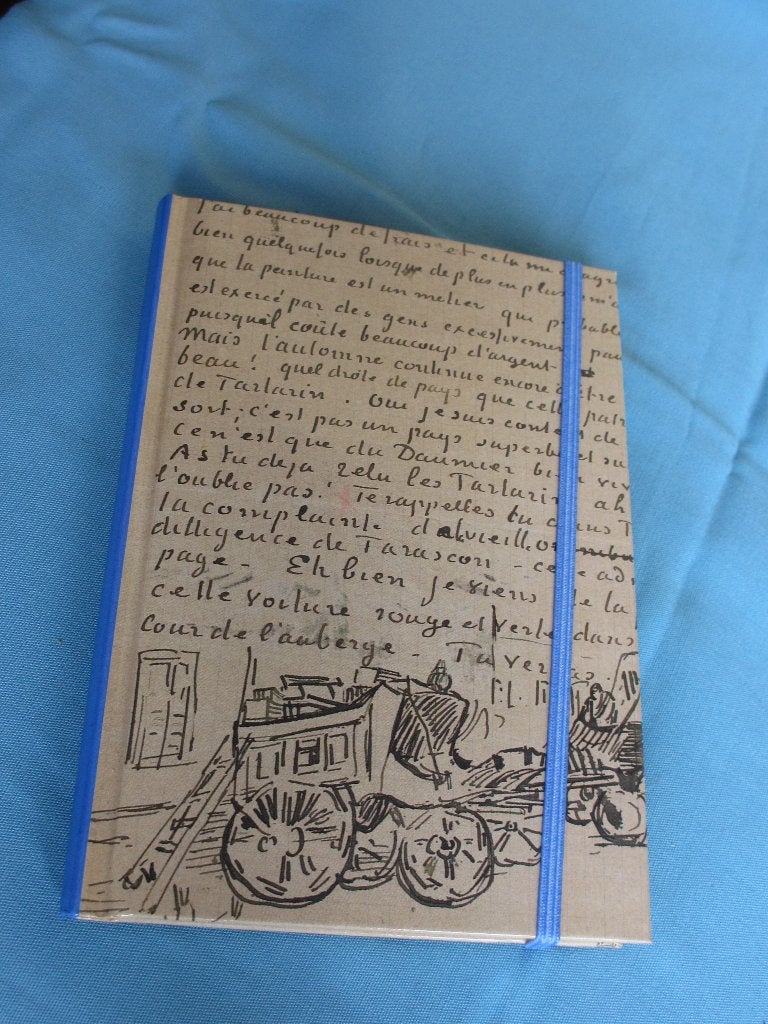 J'ai beaucoup de frais et cela me
bien quelquefois lorsque de plus en plus m'a
que la peinture est un metier qui p bable
est exercé par des gens excessivement pau
puisquil coûte beaucoup d'argent
Mais l'automne continue encore être
beau! quel drole de pays que cette patr
de Tartarin. Oui je suis content de
sort; c'est pas un pays superbe et su
ce n'est que du Daumier bien viv
As tu deja relu les Tartarin ah
l'oublie pas! Te rappelles tu dans T
la complainte de la vieille
dilligence de Tarascon - cette ad
page - Eh bien je viens de la
cette voiture rouge et verte dans
cour de l'auberge - Tu verras